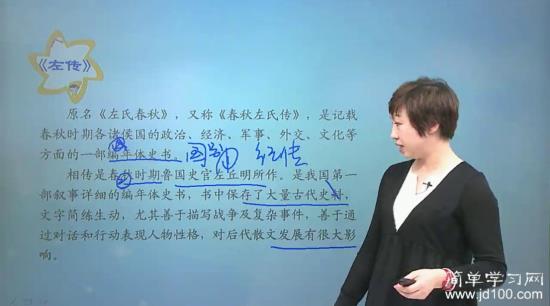 《左传》
原名《左氏春秋》，又称《春秋左氏传》，是记载
春秋时期各诸侯国的政治、经济、军事、外交、文化等
方面的一部编年体史书。 国别 纪传
相传是春秋时期鲁国史官左丘明所作。是我国第一
部叙事详细的编年体史书，书中保存了大量古代史料，
文字简练生动，尤其善于描写战争及复杂事件，善于通
过对话和行动表现人物性格，对后代散文发展有很大影
响。
简单学习网
www.jd100.com